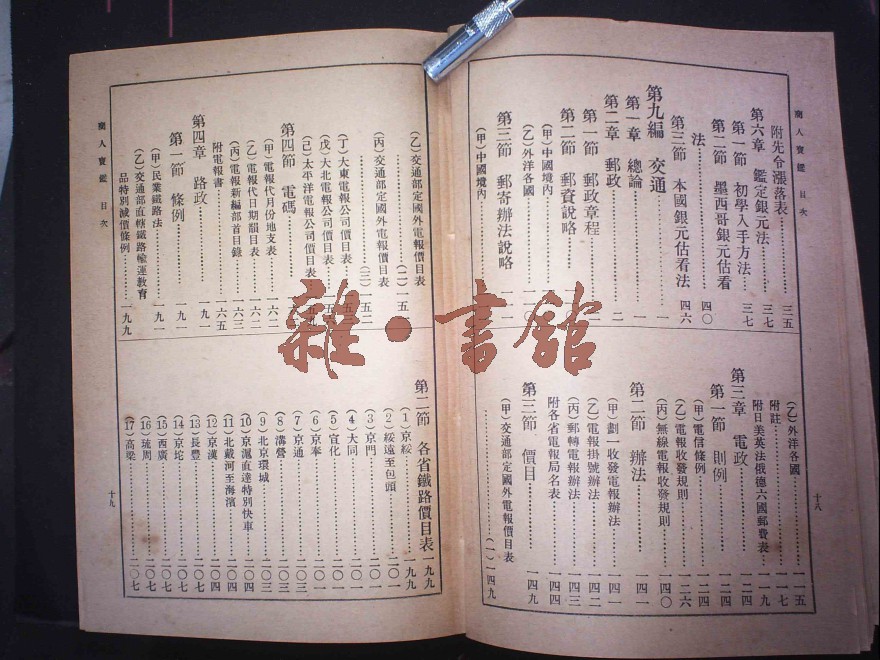 商人寶鑑 目次
附先令漲落表……三五
第六章 鑑定銀元法……三七
第一節 初學入手方法……三七
第二節 墨西哥銀元估看
法……四〇
第三節 本國銀元估看法……四六
第九編 交通
第一章 總論……一
第二章 郵政……二
第一節 郵政章程
第二節 郵資說略
(甲)中國境內
(乙)外洋各國
第三節 郵寄辦法說略
(甲)中國境內
(乙)外洋各國……一一五
附註……一一七
附日美英法俄德六國郵費表……一一九
第三章 電政……一二四
第一節 則例……一二四
(甲)電信條例……一二四
(乙)電報收發規則……一二六
(丙)無線電報收發規則……一四〇
第二節 辦法……一四一
(甲)劃一收發電報辦法……一四一
(乙)電報掛號辦法……一四二
(丙)郵轉電報辦法……一四三
附各省電報局名表……一四四
第三節 價目……一四九
(甲)交通部定國外電報價目表
……(一)一四九
十八
商人寶鑑 目次
(乙)交通部定國外電報價目表
……(二)一五
(丙)交通部定國外電報價目表
……(三)一五二
(丁)大東電報公司價目表
(戊)大北電報公司價目表
(己)太平洋電報公司價目表
第四節 電碼
(甲)電報代月份地支表……一六二
(乙)電報代日期韻目表……一六二
(丙)電報新編部首目錄……一六三
附電報書……一六五
第四章 路政……一九一
第一節 條例……一九
(甲)民業鐵路法……一九一
(乙)交通部直轄鐵路輸運教育
品特別減價條例……一九九
第二節 各省鐵路價目表……一九九
(1)京綏……一九九
(2)綏遠至包頭……二〇一
(3)京門……二〇一
(4)大同……二〇一
(5)宣化……二〇一
(6)京奉……二〇一
(7)京通……二〇三
(8)溝營……二〇三
(9)北京環城……二〇三
(10)京滬直達特別快車……二〇四
(11)北戴河至海濱……二〇四
(12)京漢……二〇四
(13)長豐……二〇七
(14)京坨……二〇七
(15)西廣……二〇七
(16)琉周……二〇七
(17)高梁……二〇七
十九
雜·書館